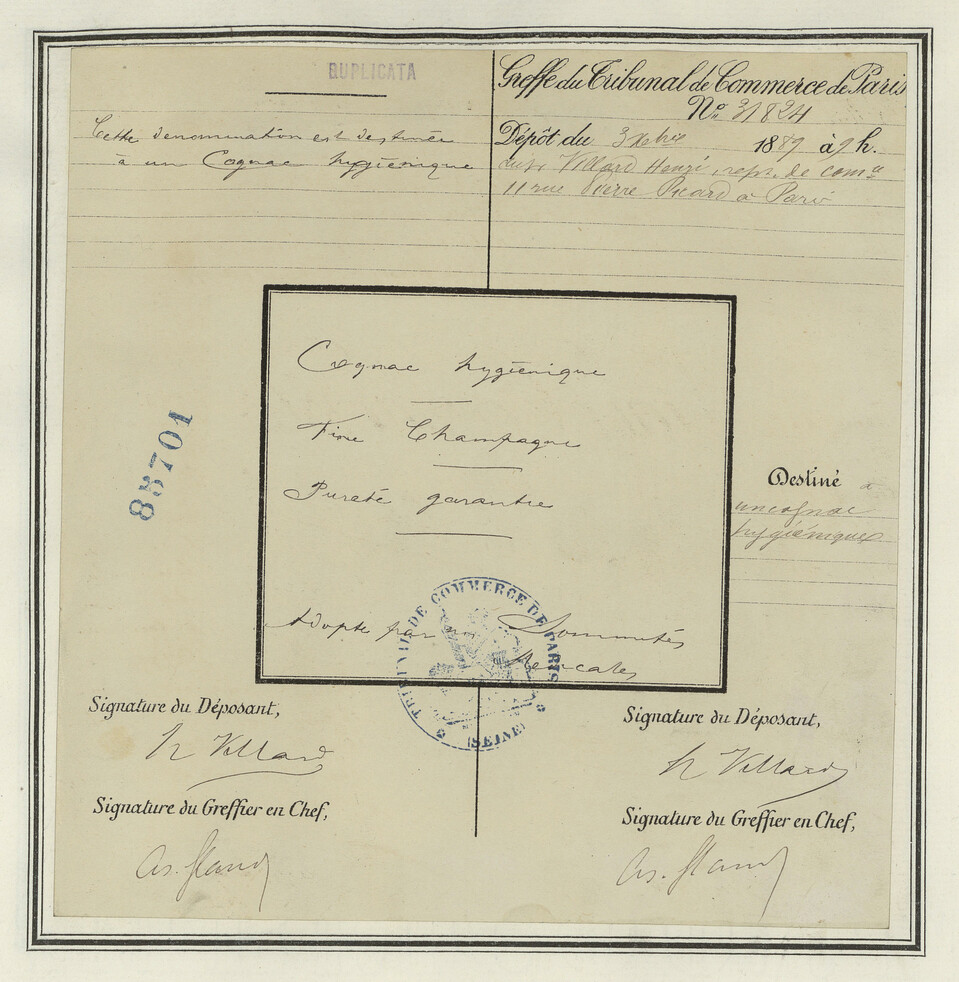 DUPLICATA
Cette dénomination est destinée
à un Cognac hygiénique
Greffe du Tribunal de Commerce de Paris
No. 31824
Dépôt du 3 Xbre 1889 à 9 h.
Villard Henri, repr. de comce
11 rue Pierre Picard à Paris
Cognac hygiénique
Fine Champagne
Pureté garantie
Adopté par Sommités
85701
Destiné à
un cognac
hygiénique
TRIBUNAL DE COMMERCE DE PARIS
(SEINE)
Signature du Déposant,
h Villard
Signature du Greffier en Chef,
Signature du Déposant,
h Villard
Signature du Greffier en Chef,